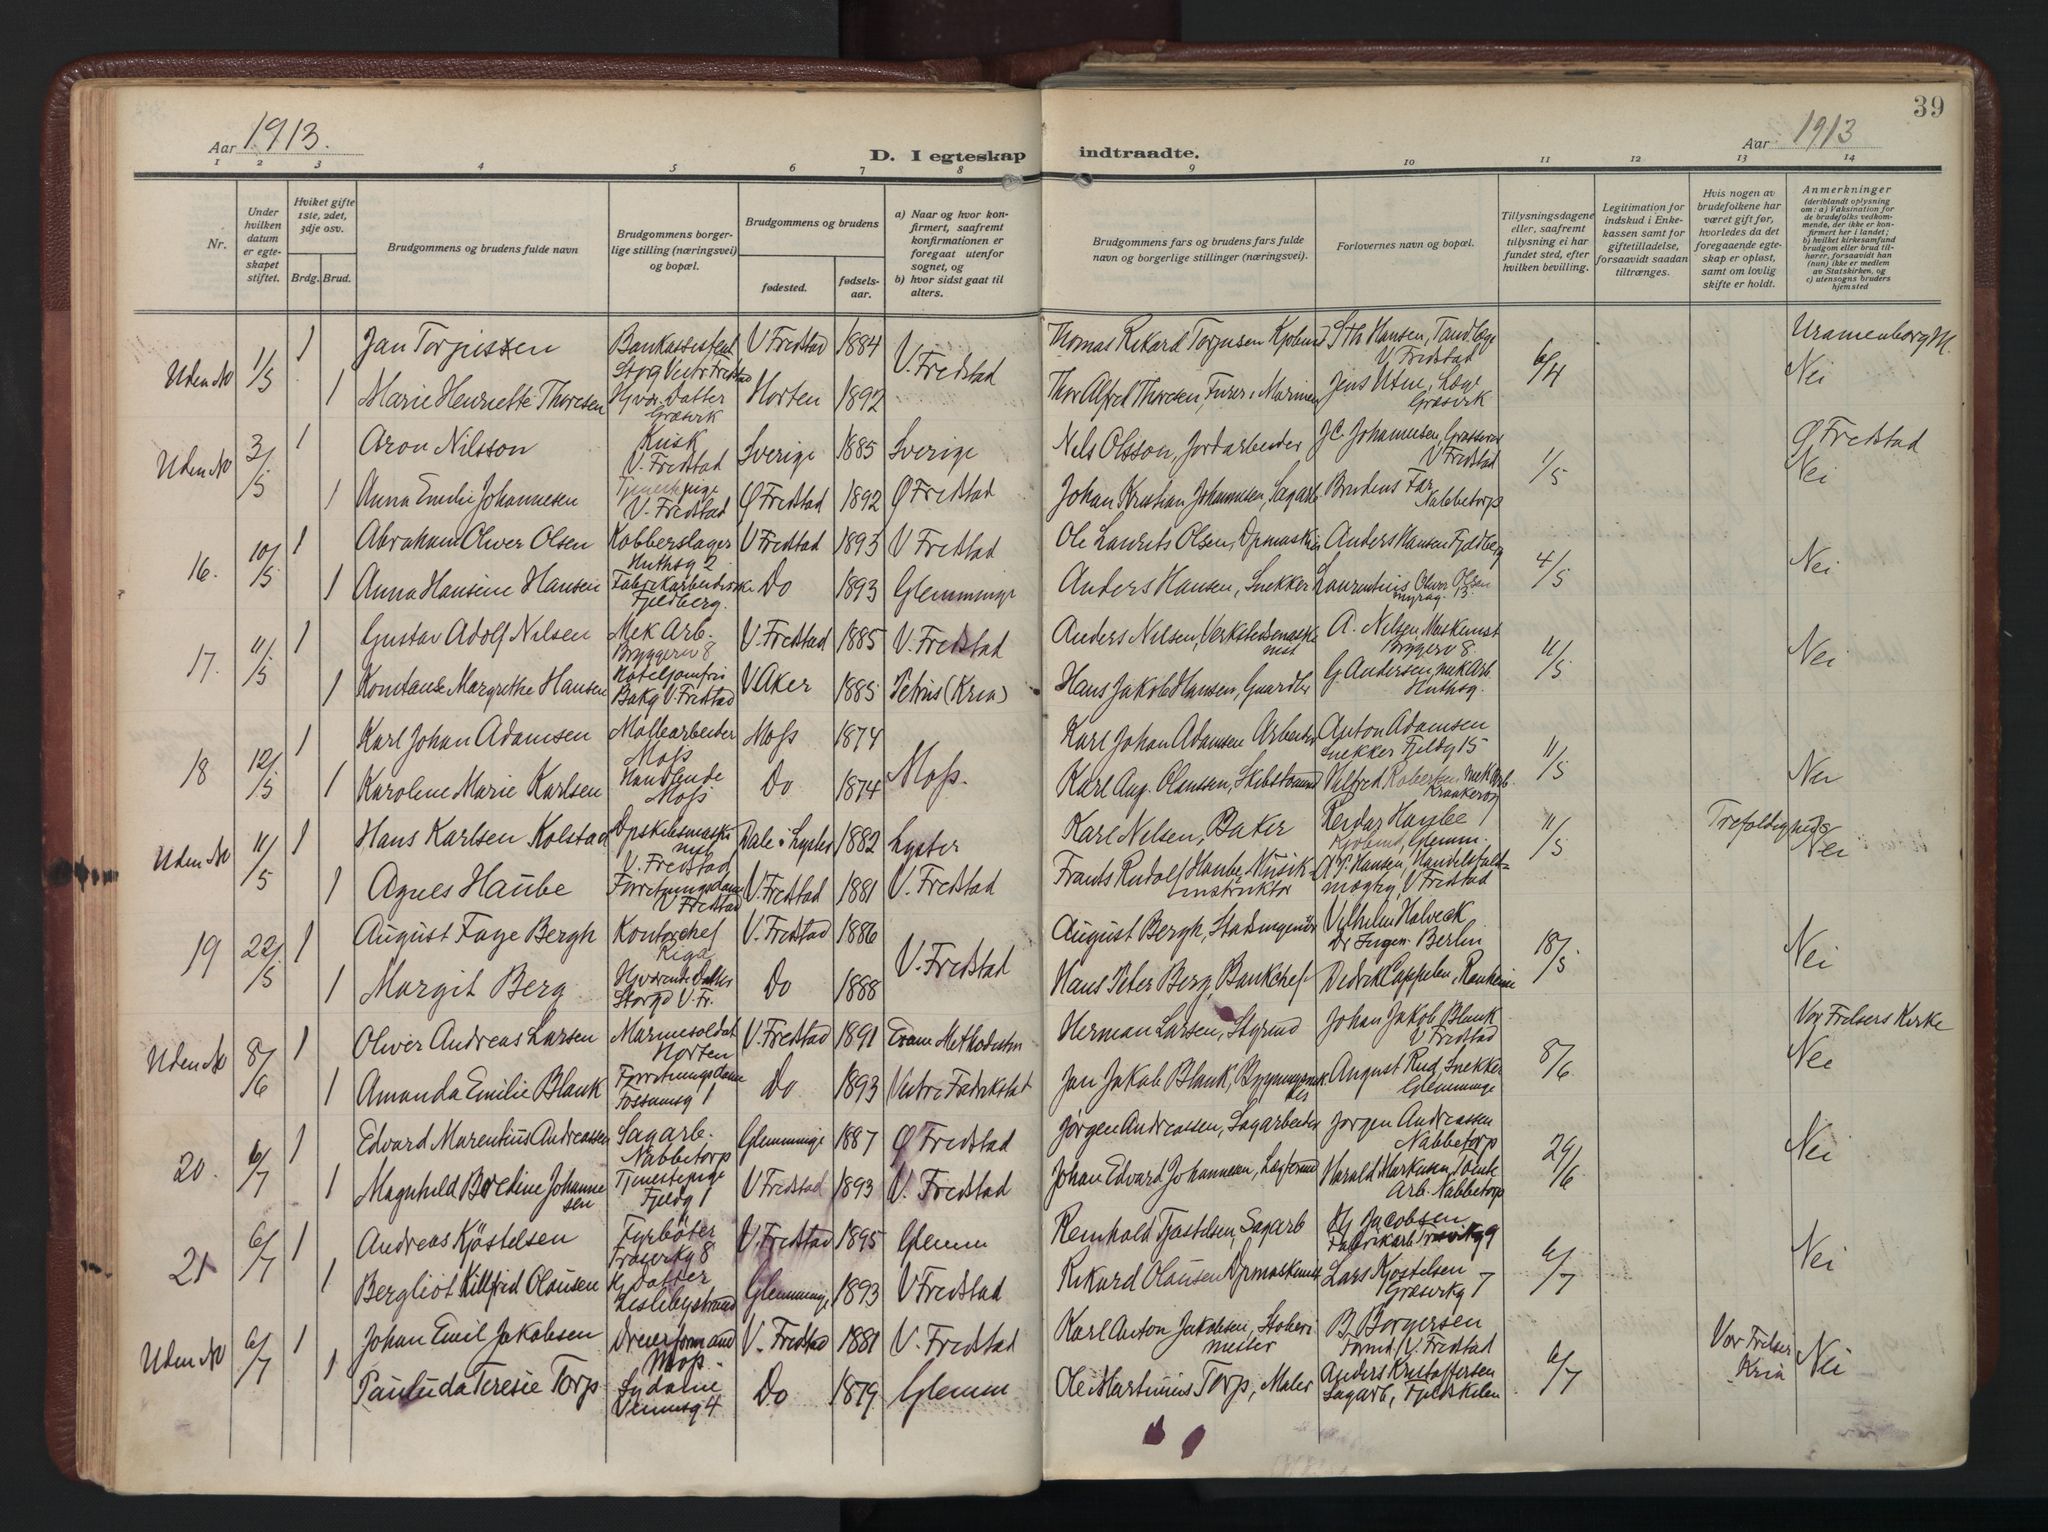 39
Aar 1913.
D. I egteskap indtraadte.
Aar 1913
1 2 3 4 5 6 7 8 9 10 11 12 13 14
Nr.
Under hvilken datum er egteskapet stiftet.
Hviket gifte 1ste, 2det, 3dje osv.
Brdg. Brud.
Brudgommens og brudens fulde navn
Brudgommens borgerlige stilling (næringsvei) og bopæl.
Brudgommens og brudens
fødested.
fødselsaar.
a) Naar og hvor konfirmert, saafremt konfirmationen er foregaat utenfor sognet, og
b) hvor sidst gaat til alters.
Brudgommens fars og brudens fars fulde navn og borgerlige stillinger (næringsvei).
Forlovernes navn og bopæl.
Tillysningsdagene eller, saafremt tillysning ei har fundet sted, efter hvilken bevilling.
Legitimation for indskud i Enkekassen samt for giftetilladelse, forsaavidt saadan tiltrænges.
Hvis nogen av brudefolkene har været gift før, hvorledes da det foregaaende egteskap er opløst, samt om lovlig skifte er holdt.
Anmerkninger (deriblandt oplysning om: a) Vaksination for de brudefolks vedkommende, der ikke er konfirmert her i landet; b) hvilket kirkesamfund brudgom eller brud tilhører, forsaavidt han (hun) ikke er medlem av Statskirken, og c) utensogns bruders hjemsted
Uden No 1/5 1 Jan Torjussen V Fredstad 1884 V. Fredstad Thomas Rikard Torjusen Sth Hansen, Tandlæge V Fredstad 6/4 Uranienborg M.
1 Marie Henriette Thoresen Hjvær. Datter Græsvik Horten 1892 Thor Alfred Thoresen, Jens Utne, Læge Græsvik Nei
Uden No 3/5 1 Aron Nilsson Kusk V. Fredstad Sverige 1885 Sverige Nels Olsson, Jordarbeider J.C. Johannesen, V Fredstad 1/5 Ø Fredstad Nei
1 Anna Emilie Johannesen Tjenestepige V. Fredstad Ø Fredstad 1892 Ø Fredstad Johan Kristian Johannesen, Sagarb Brudens Far Nabbetorp
16. 10/5 1 Abraham Oliver Olsen Kobberslager Huthsg 2 V Fredstad 1893 V Fredstad Ole Laurits Olsen, Opmaskin Anders Hansen Fjeldberg 4/5 Nei
1 Anna Hansine Hansen Fabrikarbeiderske Fjeldberg. Do 1893 Glemminge Anders Hansen, Snekker Laurentius Oliver Olsen
17. 11/5 1 Gustav Adolf Nilsen Mek Arb. Bryggerv 8 V. Fredstad 1885 V. Fredstad Anders Nilsen, Verkstedsmaskinist A. Nilsen, Maskinist Bryggerv 8. 4/5 Nei
1 Konstanse Margrethe Hansen Hoteljomfru Bakg V. Fredstad V Aker 1885 Petrus (Kria) Hans Jakob Hansen, Gaardbr G. Andersen, mek Arb. Huthsg.
18 12/5 1 Karl Johan Adamsen Møllearbeider Moss Moss 1874 Moss. Karl Johan Adamsen Arbeider Anton Adamsen Snekker Fjeldg 15 11/5 Nei
1 Karoline Marie Karlsen Handlende Moss Do 1874 Karl Aug. Olaussen, Skibstømmd Vilfred Robertsen, mek Arb. Kraakerøy
Uden No 11/5 1 Hans Karlsen Kolstad Dpskibsmaskinist V. Fredstad Dale i Lyster 1882 Lyster Karl Nelsen, Baker Reidar Haube Glemm. 11/5 Trefoldigheds Nei
1 Agnes Haube Forretningsdame V Fredstad V. Fredstad 1881 V. Fredstad Frants Rudolf Haube, Musikinstruktør A.P. Hansen, Handelsfuldmægtig, V Fredstad
19 22/5 1 August Faye Bergh Kontorchef Riga V. Fredstad 1886 V. Fredstad August Bergh, Stadsingeniør Vilhelm Holveck Dr Ingen. Berlin 18/5 Nei
1 Margit Berg Hjværende Datter Storgd V. Fr. Do 1888 Hans Peter Berg, Bankchef Didrik Cappelen, Ranheim
Uden No 8/6 1 Oliver Andreas Larsen Marinesoldat Horten V. Fredstad 1891 Herman Larsen, Styrmd Johan Jakob Blank V Fredstad 8/6 Vor Frelsers Kirke Nei
1 Amanda Emilie Blank Forretningsdame Fossumsg 1 Do 1893 Vestre Fredrikstad Jan Jakob Blank, August Rud, Snekker Glemminge
20. 6/7 1 Edvard Marentius Andreassen Sagarb. Nabbetorp Glemminge 1887 Ø Fredstad Jørgen Andreassen, Sagarbeider Jørgen Andreassen Nabbetorp 29/6 Nei
1 Magnhild Boedine Johannesen Tjenestepige Fjeldg 1 V Fredstad 1893 V. Fredstad Johan Edvard Johannesen, Harald Markusen, Arb. Nabbetorp
21 6/7 1 Andreas Kjøstelsen Fyrbøter V. Fredstad 1895 Glemm Reinhold Kjøstelsen, Sagarb Hj Jacobsen Fabrikarb 6/7 Nei
1 Bergliot Killfrid Olausen Hj Datter Lislebystrand Glemminge 1893 V Fredstad Rikard Olausen Dpmaskinist Lars Kjøstelsen Græsvikg 7
Uden No 6/7 1 Johan Emil Jakobsen Dreierformand Moss. V. Fredstad 1881 V. Fredstad Karl Anton Jakobsen, Støberimester B. Borgersen Formd, V. Fredstad 6/7 Vor Frelser Kria Nei
1 Paulida Teresie Torp Sydame Venusg 4 Do 1879 Glemm Ole Martinius Torp, Maler Anders Kristoffersen Sagarb, Fjeldskilen